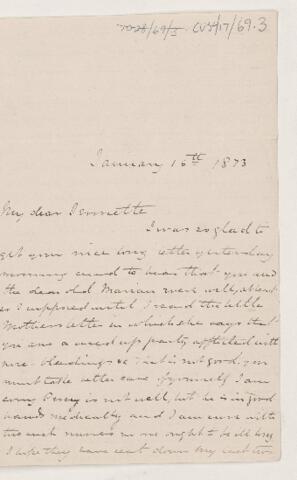 CVS/17/69.3
January 16th 1873
My dear Jennette
I was so glad to
get your nice long letter yesterday
morning and to hear that you and
the dear old Marian were well, at least
so I supposed until I read the little
Mothers letter in which she says that
you are a used up party afflicted with
bleedings &c That is not good, you
must take better care of yourself I am
sorry Percy is not well, but he is in good
hands medically and I am sure with
two such nurses no one ought to be ill long
I hope they have sent down my last two